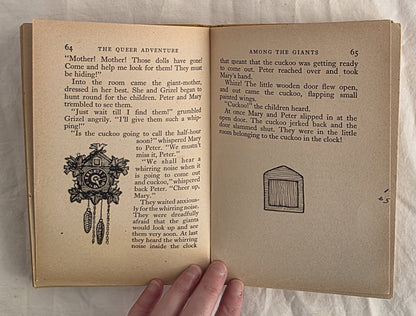 64 THE QUEER ADVENTURE
"Mother! Mother! Those dolls have gone!
Come and help me look for them! They must
be hiding!"
Into the room came the giant-mother,
dressed in her best. She and Grizel began to
hunt round for the children. Peter and Mary
trembled to see them.
"Just wait till I find them!" grumbled
Grizel angrily. "I'll give them such a whip-
ping!"
"Is the cuckoo going to call the half-hour
soon?" whispered Mary
to Peter. "We mustn't
miss it, Peter."
"We shall hear a
whirring noise when it
is going to come out
and cuckoo," whispered
back Peter. "Cheer up,
Mary."
They waited anxious-
ly for the whirring noise.
They were dreadfully
afraid that the giants
would look up and see
them very soon. At last
they heard the whirring
noise inside the clock
AMONG THE GIANTS 65
that meant that the cuckoo was getting ready
to come out. Peter reached over and took
Mary's hand.
Whirr! The little wooden door flew open,
and out came the cuckoo, flapping small
painted wings.
"Cuckoo!" the children heard.
At once Mary and Peter slipped in at the
open door. The cuckoo jerked back and the
door slammed shut. They were in the little
room belonging to the cuckoo in the clock!